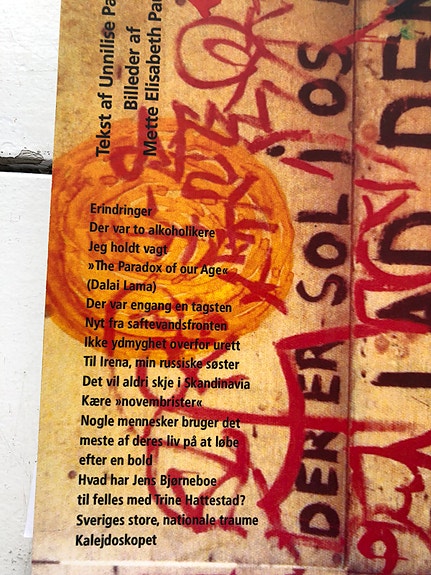 Tekst af Unnilise
Billeder af
Mette Elisabeth
DER ER SOL I OS
Erindringer
Der var to alkoholikere
Jeg holdt vagt
»The Paradox of our Age«
(Dalai Lama)
Der var engang en tagsten
Nyt fra saftevandsfronten
Ikke ydmyghet overfor urett
Til Irena, min russiske søster
Det vil aldri skje i Skandinavia
Kære »novembrister«
Nogle mennesker bruger det
meste af deres liv på at løbe
efter en bold
Hvad har Jens Bjørneboe
til felles med Trine Hattestad?
Sveriges store, nationale traume
Kalejdoskopet